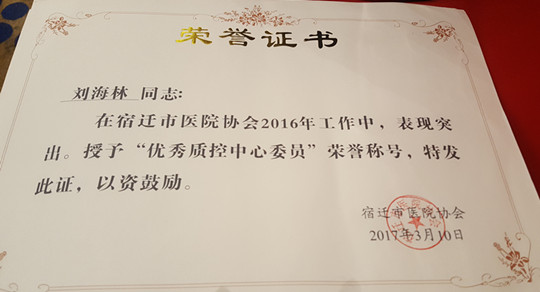 荣誉证书
刘海林 同志:
在宿迁市医院协会2016年工作中，表现突
出。授予“优秀质控中心委员”荣誉称号，特发
此证，以资鼓励。
宿迁市医院协会
2017年3月10日